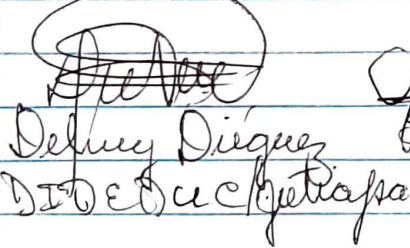 Delmy Diéguez
DIDEDUC/Jutiapa